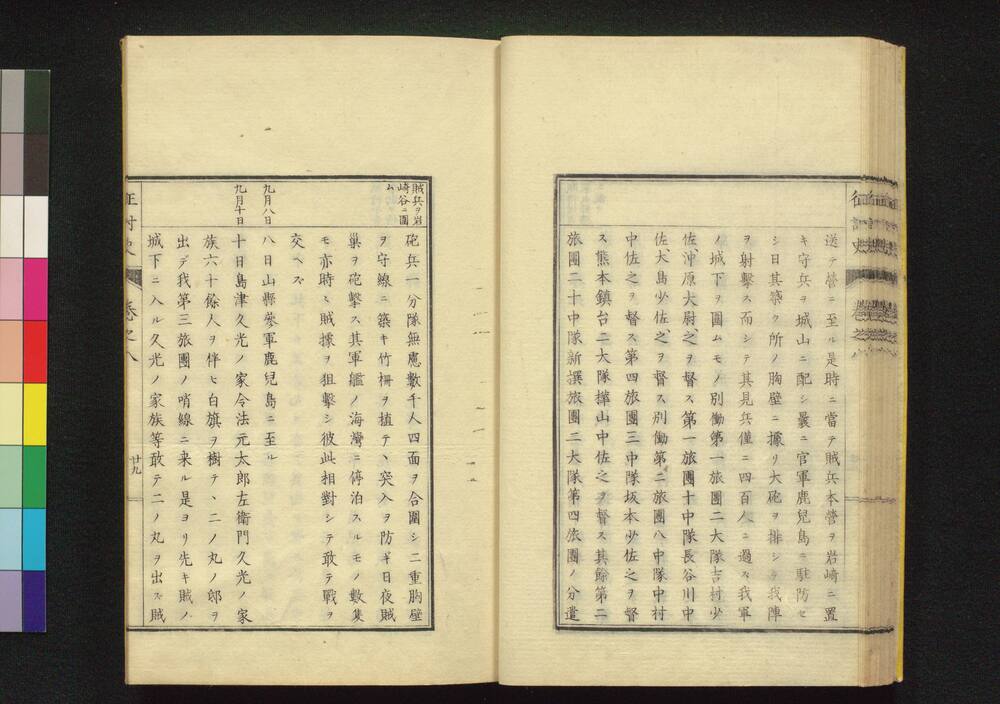 送テ營ニ至ル是時ニ當テ賊兵本營ヲ岩崎ニ置
キ守兵ヲ城山ニ配シ曩ニ官軍鹿兒島ニ駐防セ
シ日其築ク所ノ胸壁ニ據リ大砲ヲ排シテ我陣
ヲ射擊ス而シテ其見兵僅ニ四百人ニ過ス我軍
ノ城下ヲ圍ムモノ別働第一旅團二大隊吉村少
佐、沖原大尉、之ヲ督ス第一旅團十中隊長谷川中
佐、大島少佐、之ヲ督ス別働第二旅團八中隊中村
中佐之ヲ督ス第四旅團三中隊坂本少佐之ヲ督
ス熊本鎮台二大隊樺山中佐之ヲ督ス其餘第二
旅團二十中隊新撰旅團二大隊第四旅團ノ分遣
賊兵ヲ岩
崎谷ニ圍
ム
砲兵一分隊無慮數千人四面ヲ合圍シ二重胸壁
ヲ守線ニ築キ竹柵ヲ植テヽ突入ヲ防ギ日夜賊
巢ヲ砲擊ス其軍艦ノ海灣ニ停泊スルモノ數隻
モ亦時ヽ賊據ヲ狙擊シ彼此相對シテ敢テ戰ヲ
交ヘズ
九月八日
八日山縣參軍鹿兒島ニ至ル
九月十日
十日島津久光ノ家令法元太郎左衞門久光ノ家
族六十餘人ヲ伴ヒ白旗ヲ樹テヽ二ノ丸ノ邸ヲ
出デ我第三旅團ノ哨線ニ来ル是ヨリ先キ賊ノ
城下ニ入ル久光ノ家族等敢テ二ノ丸ヲ出ズ賊
征討史 卷之八 廿九